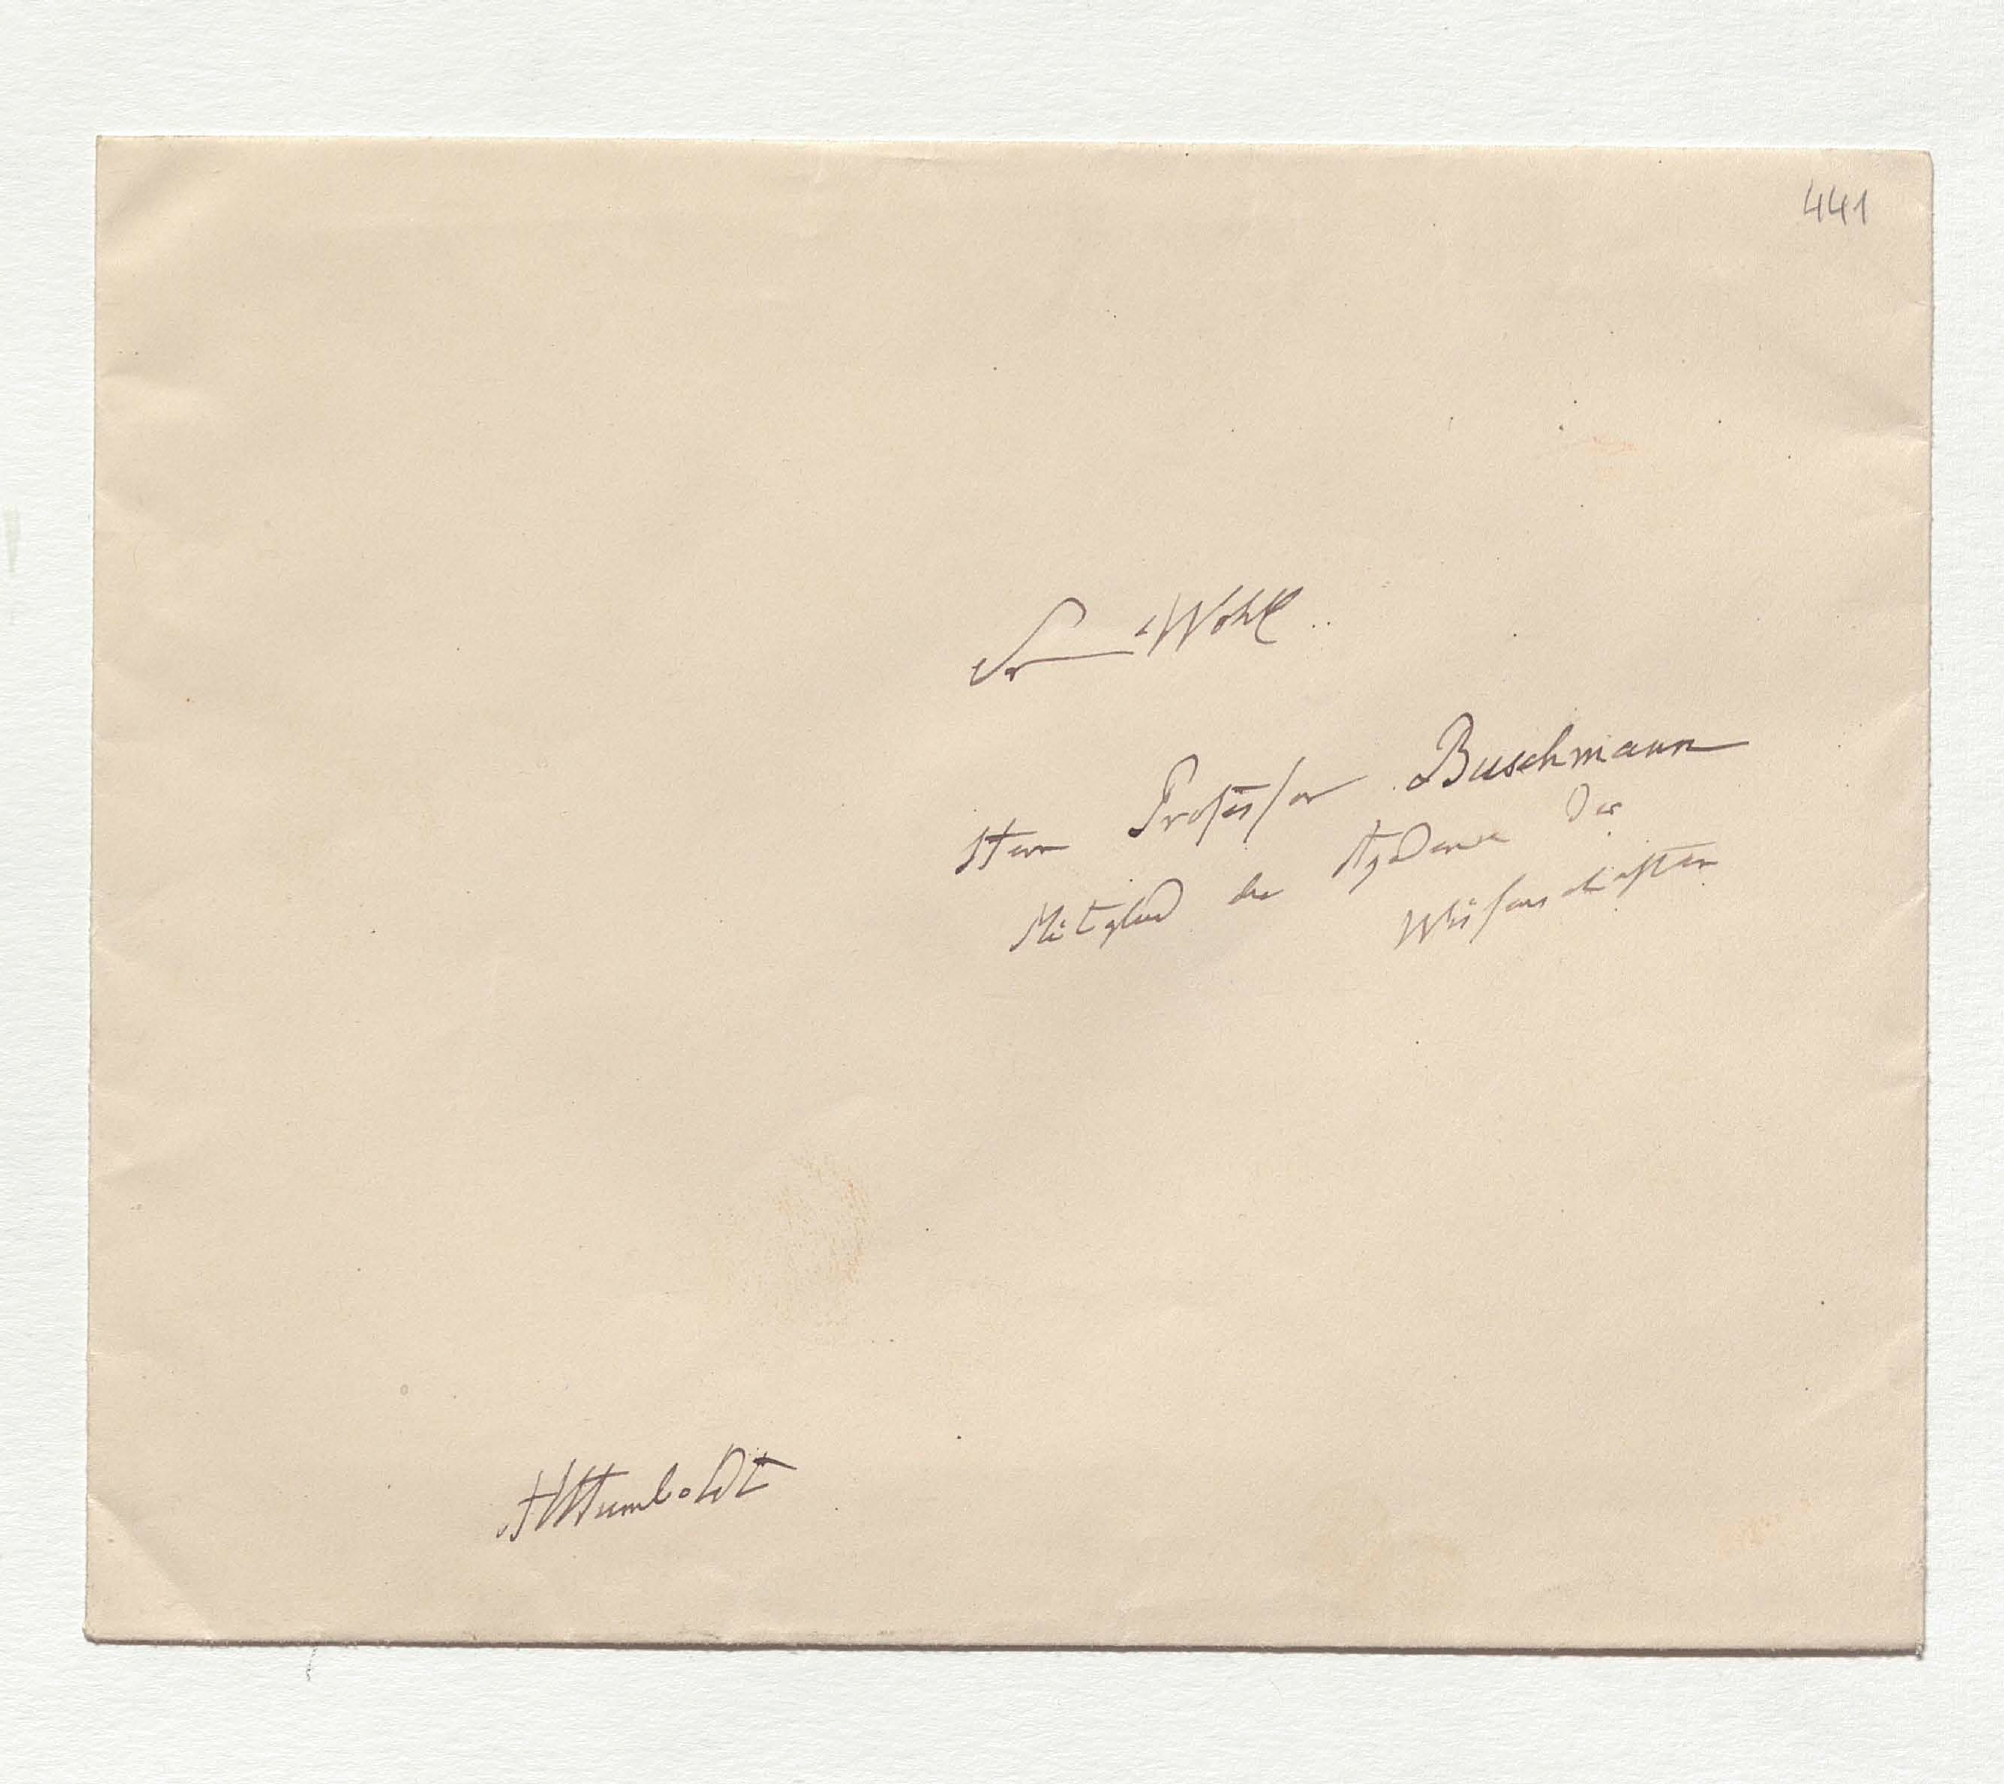 441
Sr Wohl..
Herrn Professor Buschmann
Mitglied der Academie der
Wissenschaften
AvHumboldt